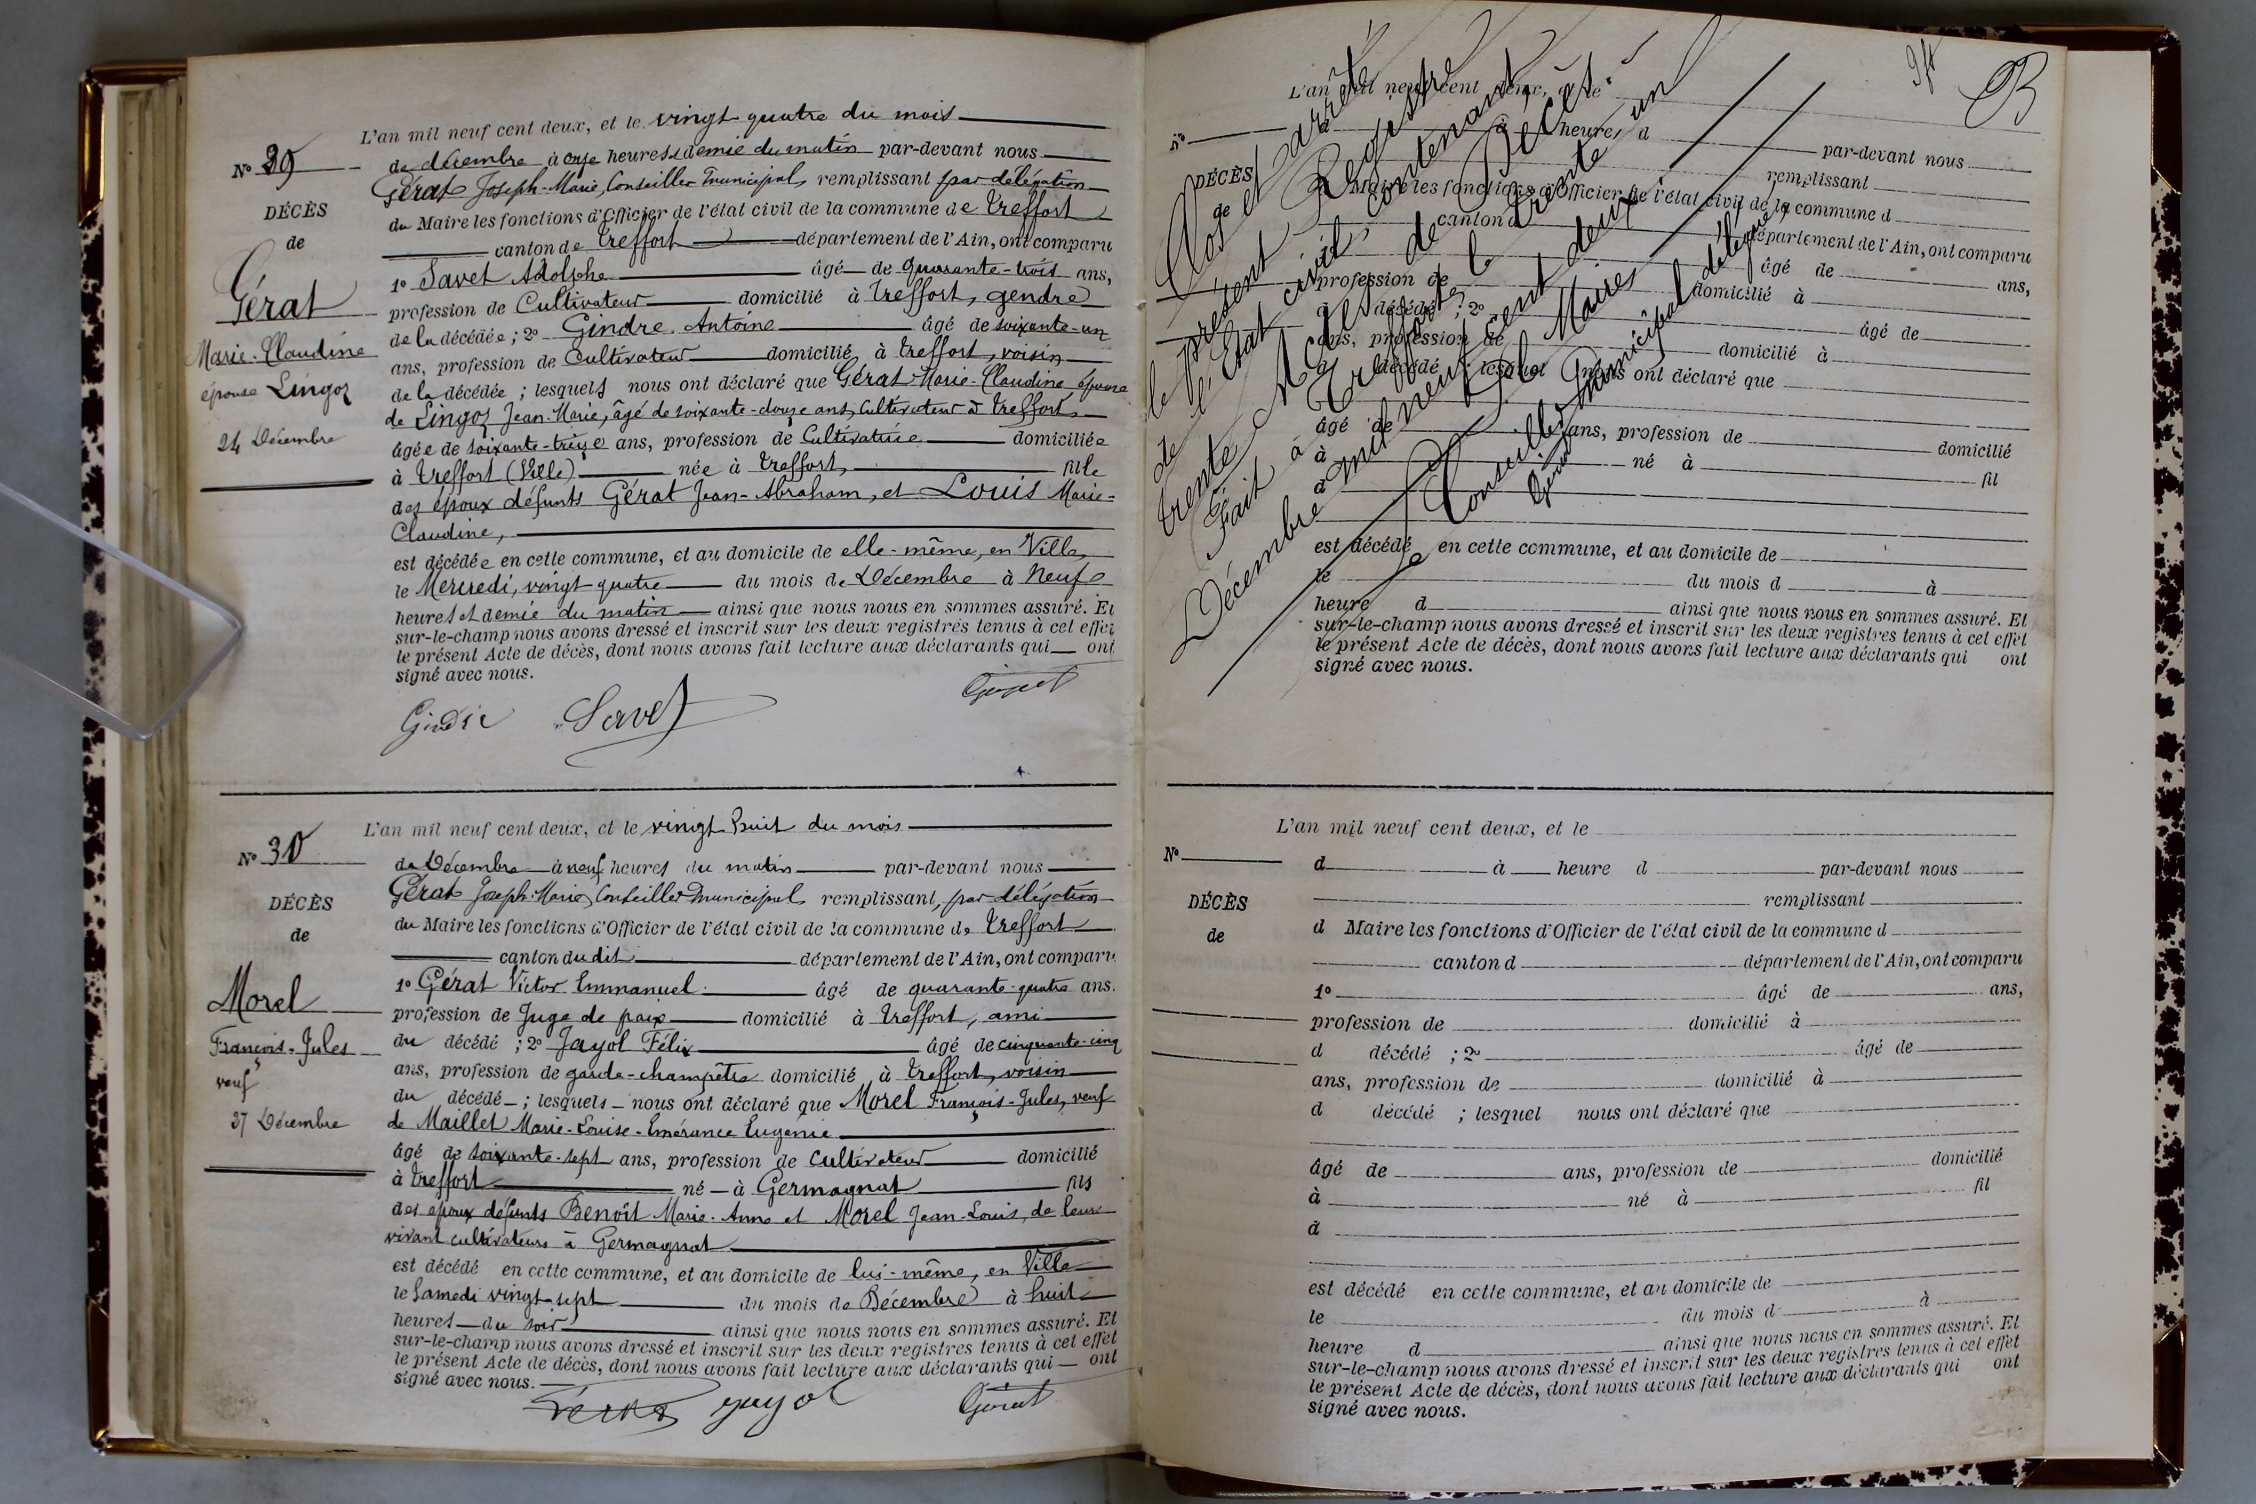 L'an mil neuf cent deux, et le vingt quatre du mois
N° 29
de décembre à onze heures & demie du matin par-devant nous
Gérat Joseph-Marie, Conseiller municipal, remplissant par délégation
DÉCÈS
du Maire les fonctions d'Officier de l'état civil de la commune de Treffort
de
canton de Treffort département de l'Ain, ont comparu
1° Savet Adolphe âgé de quarante-trois ans,
Gérat
profession de Cultivateur domicilié à Treffort, gendre
de la décédée ; 2° Gindre Antoine âgé de soixante-un
Marie-Claudine
ans, profession de Cultivateur domicilié à Treffort, voisin
épouse Lingoz
de la décédée ; lesquels nous ont déclaré que Gérat Marie-Claudine épouse
de Lingoz Jean-Marie, âgé de soixante-douze ans, Cultivateur à Treffort,
24 Décembre
âgée de soixante-treize ans, profession de Cultivatrice domiciliée
à Treffort (Ville) née à Treffort, fille
des époux défunts Gérat Jean-Abraham, et Louis Marie-
Claudine,
est décédée en cette commune, et au domicile de elle-même, en Ville,
le Mercredi, vingt-quatre du mois de Décembre à Neuf
heures et demie du matin ainsi que nous nous en sommes assuré. Et
sur-le-champ nous avons dressé et inscrit sur les deux registres tenus à cet effet
le présent Acte de décès, dont nous avons fait lecture aux déclarants qui ont
signé avec nous.
Gindre Savet Gérat
L'an mil neuf cent deux, et le vingt huit du mois
N° 30
de Décembre à neuf heures du matin par-devant nous
Gérat Joseph-Marie, Conseiller municipal, remplissant, par délégation
DÉCÈS
du Maire les fonctions d'Officier de l'état civil de la commune de Treffort
de
canton du dit département de l'Ain, ont comparu
1° Gérat Victor Emmanuel âgé de quarante-quatre ans.
Morel
profession de Juge de paix domicilié à Treffort, ami
du décédé ; 2° Jayol Félix âgé de cinquante-cinq
François-Jules
ans, profession de garde-champêtre domicilié à Treffort, voisin
veuf
du décédé ; lesquels nous ont déclaré que Morel François-Jules, veuf
27 Décembre
de Maillet Marie-Louise-Emérance Eugenie
âgé de soixante-sept ans, profession de cultivateur domicilié
à Treffort né à Germagnat fils
des époux défunts Benoît Marie-Anne et Morel Jean-Louis, de leur
vivant cultivateurs à Germagnat
est décédé en cette commune, et au domicile de lui-même, en Ville
le Samedi vingt-sept du mois de Décembre à huit
heures du soir ainsi que nous nous en sommes assuré. Et
sur-le-champ nous avons dressé et inscrit sur les deux registres tenus à cet effet
le présent Acte de décès, dont nous avons fait lecture aux déclarants qui ont
signé avec nous.
Jayol Gérat
Clos et arrêté
le présent Registre
de l'Etat civil, contenant
trente Actes de Décès.
Fait à Treffort, le trente un
Décembre mil neuf cent deux.
Pr le Maire
Conseiller municipal délégué,
Gérat
L'an mil neuf cent deux, et le
N°
à heure d par-devant nous
remplissant
DÉCÈS
Maire les fonctions d'Officier de l'état civil de la commune d
de
canton d département de l'Ain, ont comparu
âgé de ans,
profession de domicilié à
d décédé ; 2° âgé de
ans, profession de domicilié à
d décédé ; lesquel nous ont déclaré que
âgé de ans, profession de domicilié
à né à fil
d
est décédé en cette commune, et au domicile de
le du mois d à
heure d ainsi que nous nous en sommes assuré. Et
sur-le-champ nous avons dressé et inscrit sur les deux registres tenus à cet effet
le présent Acte de décès, dont nous avons fait lecture aux déclarants qui ont
signé avec nous.
L'an mil neuf cent deux, et le
N°
d à heure d par-devant nous
remplissant
DÉCÈS
d Maire les fonctions d'Officier de l'état civil de la commune d
de
canton d département de l'Ain, ont comparu
1° âgé de ans,
profession de domicilié à
d décédé ; 2° âgé de
ans, profession de domicilié à
d décédé ; lesquel nous ont déclaré que
âgé de ans, profession de domicilié
à né à fil
d
est décédé en cette commune, et au domicile de
le du mois d à
heure d ainsi que nous nous en sommes assuré. Et
sur-le-champ nous avons dressé et inscrit sur les deux registres tenus à cet effet
le présent Acte de décès, dont nous avons fait lecture aux déclarants qui ont
signé avec nous.